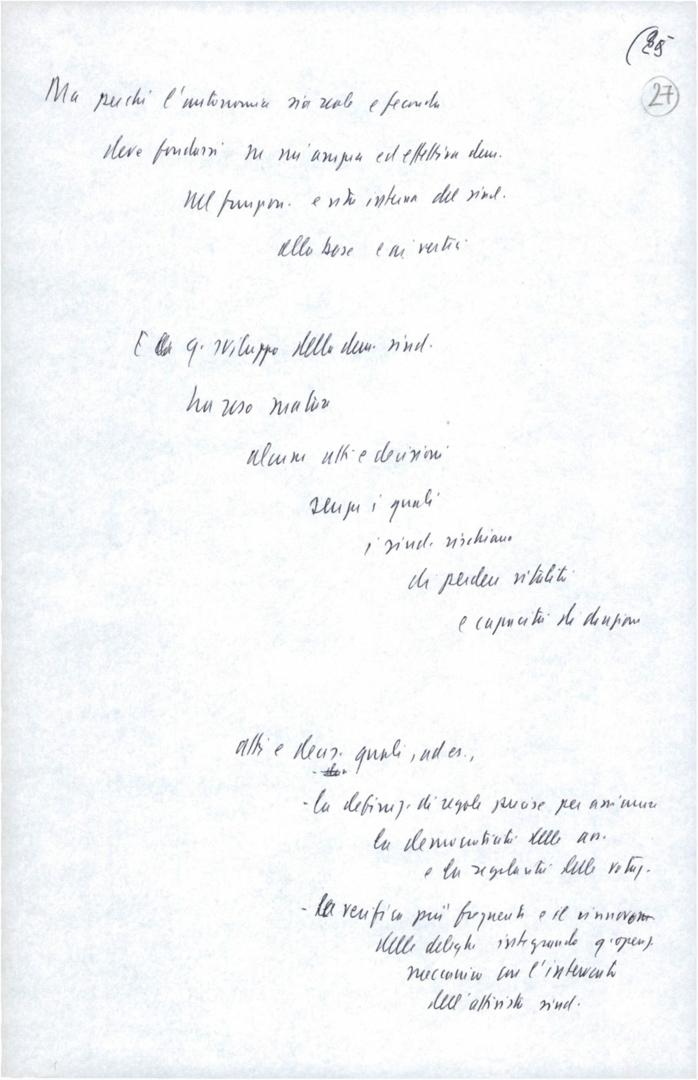 27
Ma perché l'autonomia sia reale e feconda
deve fondarsi su un'ampia ed effettiva dem.
nel funzion. e vita interna del sind.
alla base e ai vertici
E q. sviluppo della dem. sind.
ha reso matur
alcuni atti e decisioni
senza i quali
i sind. rischiano
di perdere vitalità
e capacità di direzione
atti e decis. quali, ad es.,
- la definiz. di regole precise per assicurare
la democraticità delle ass.
e la regolarità delle votaz.
- la verifica più frequente e il rinnovam
delle deleghe integrando q. operaz.
meccanica con l'intervento
dell'attivista sind.